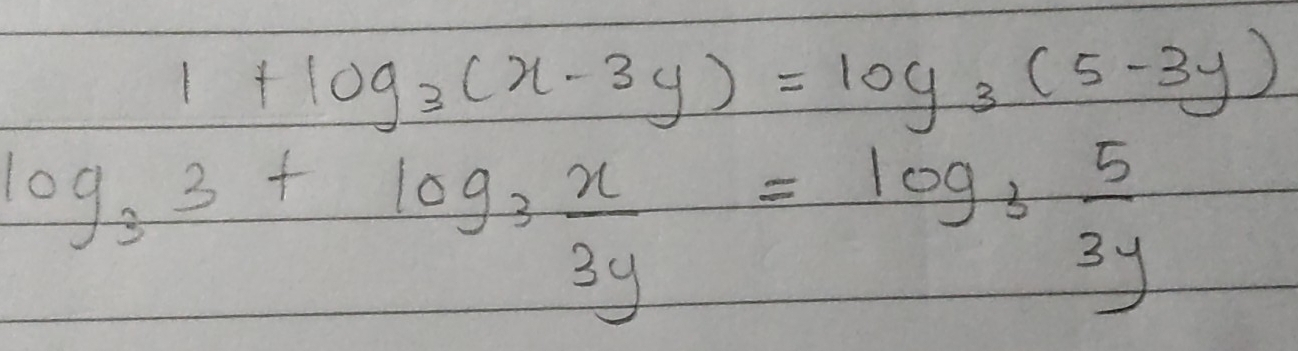 1 + log₃(x-3y) = log₃(5-3y)
log₃ 3 + log₃ x/3y = log₃ 5/3y